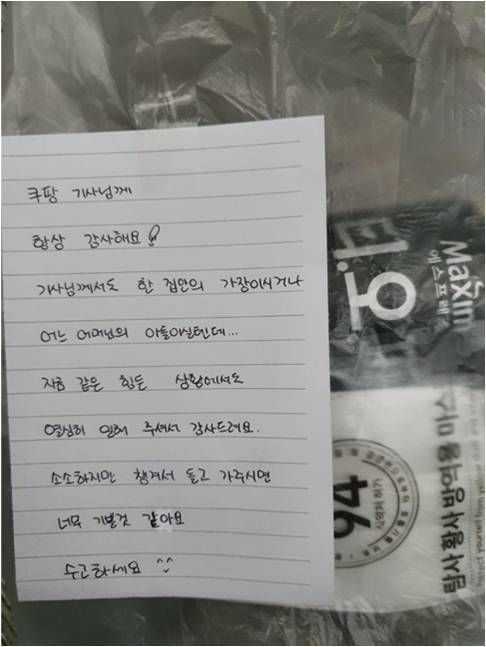 쿠팡 기사님께
항상 감사해요!
기사님께서도 한 집안의 가장이시거나
어느 어머님의 아들이실텐데...
지금 같은 힘든 상황에서도
열심히 일해 주셔서 감사드려요.
소소하지만 챙겨서 들고 가주시면
너무 기쁠것 같아요
수고하세요 ^^
Maxim
티오피
에스프레소
94